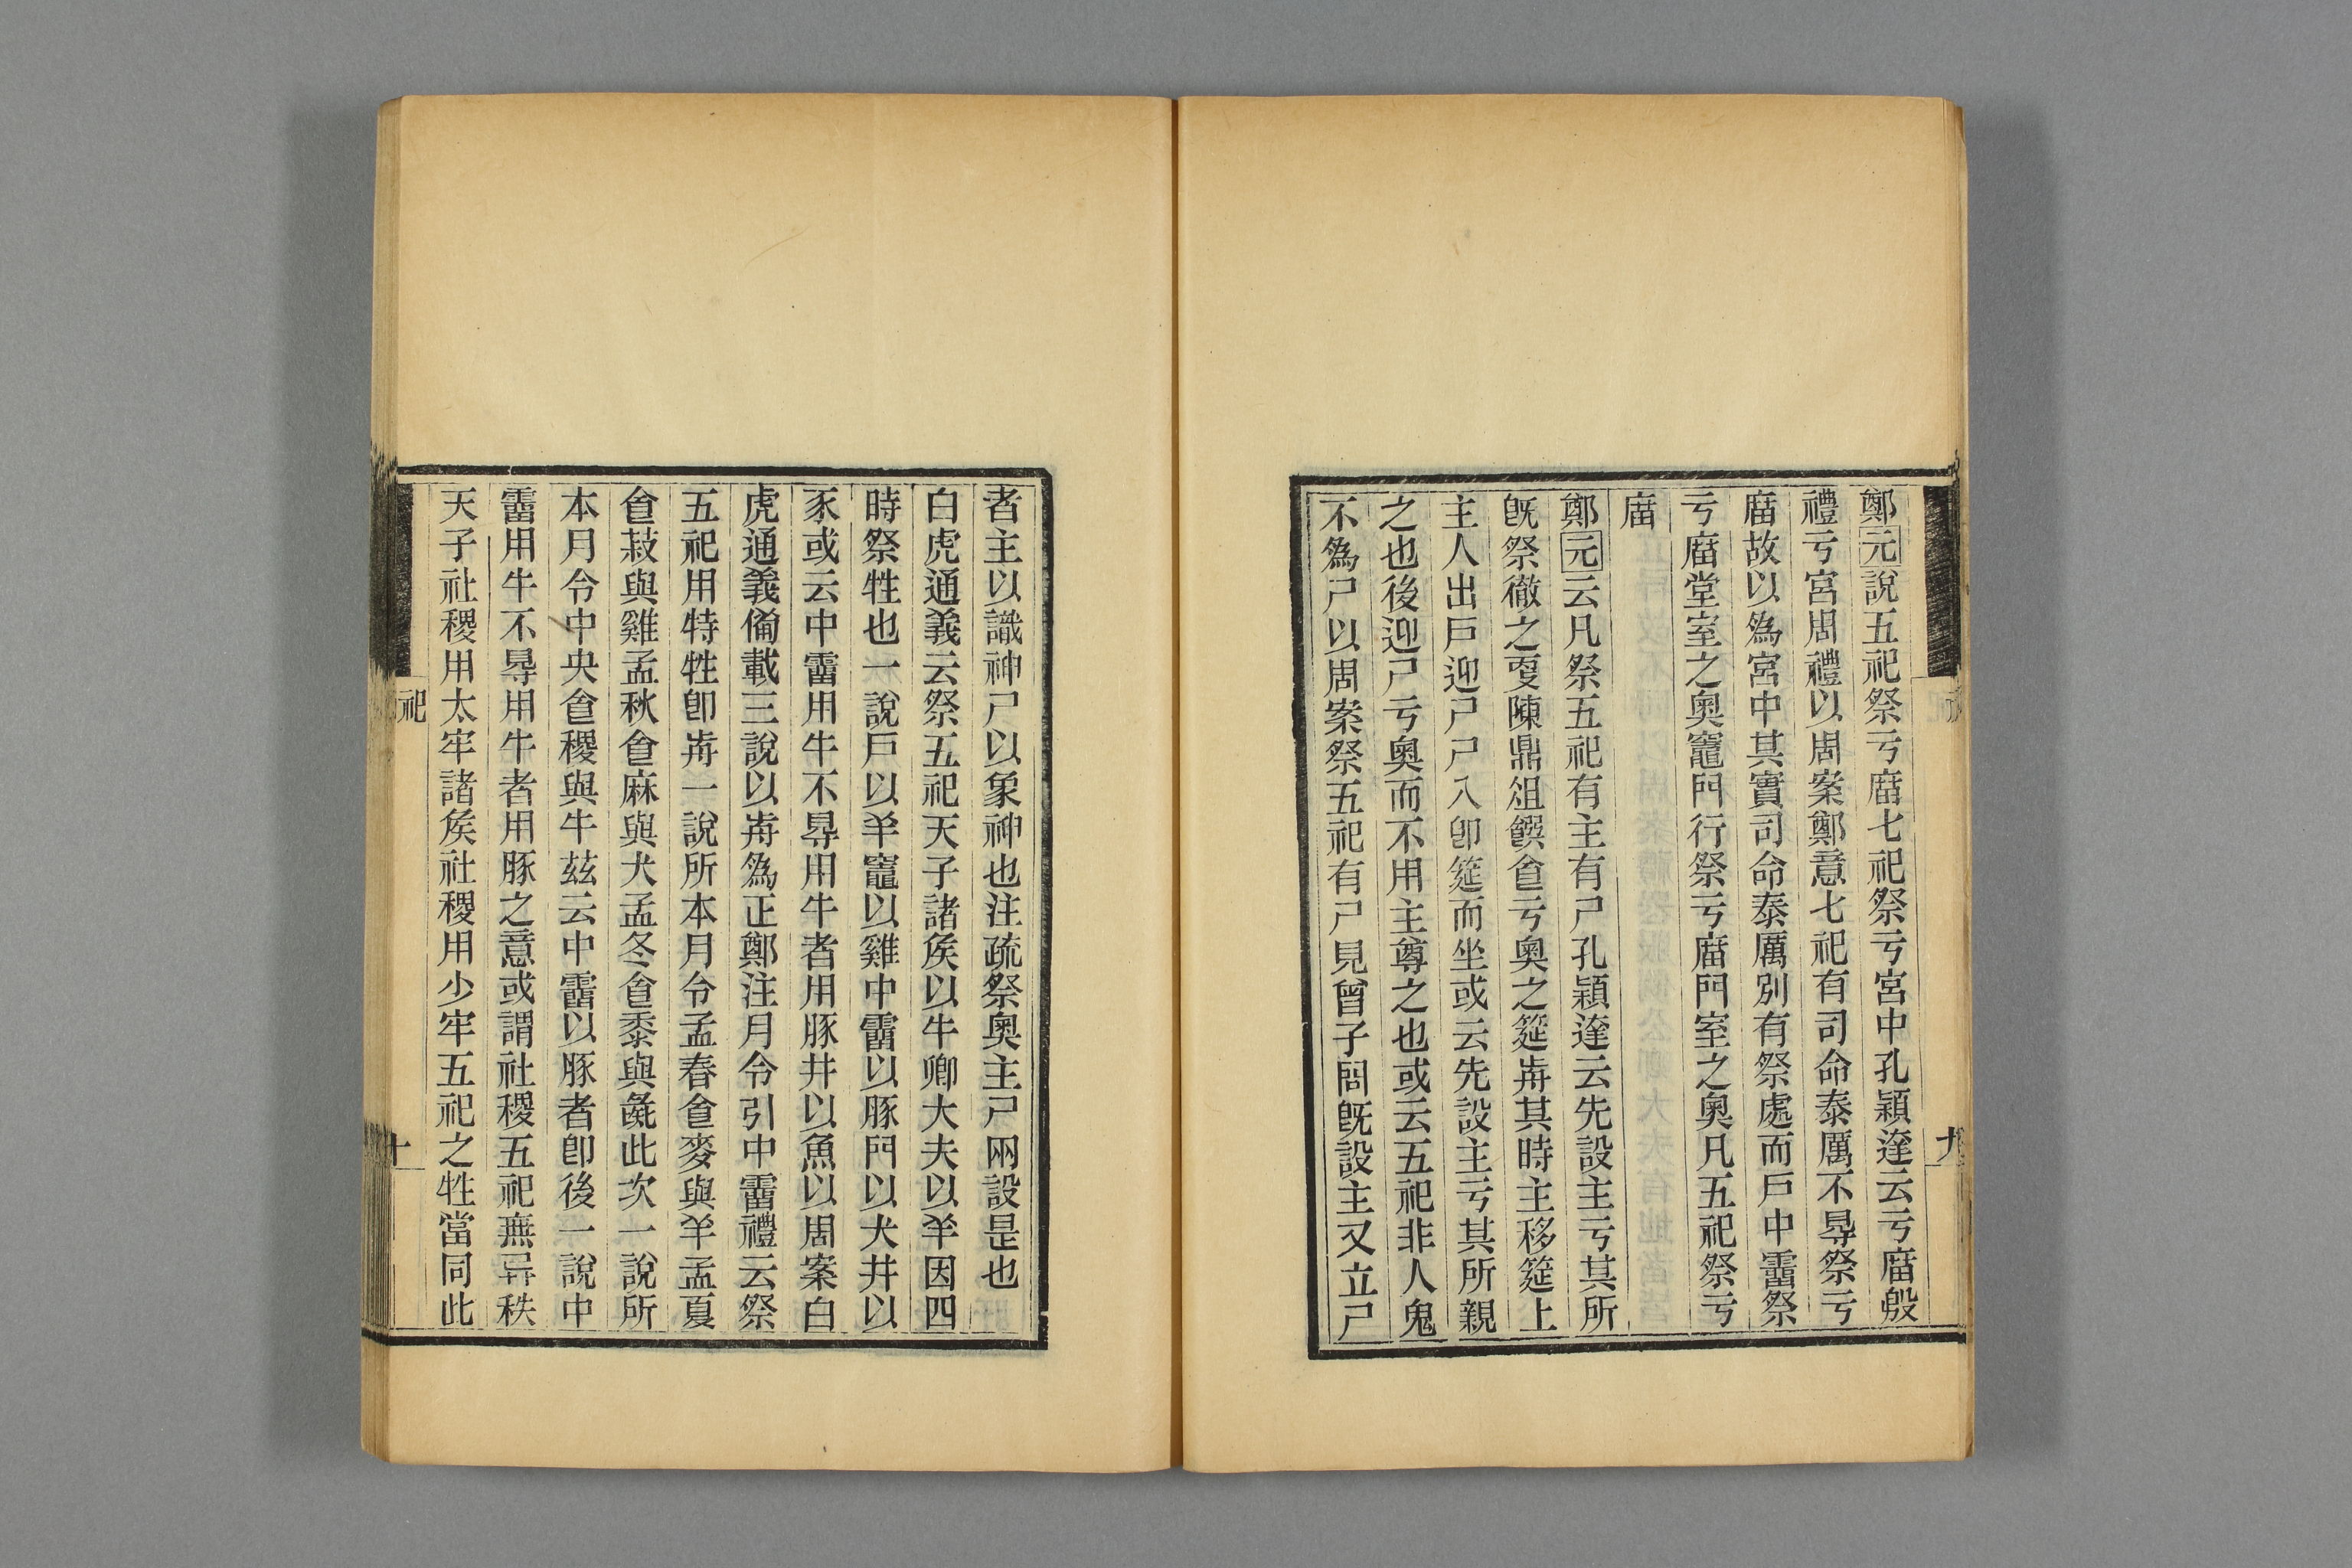 鄭元說五祀祭亏庿七祀祭亏宮中孔穎達云亏庿殷
禮亏宮周禮以周案鄭意七祀有司命泰厲不㝵祭亏
庿故以為宮中其實司命泰厲別有祭處而戶中霤祭
亏庿堂室之奧竈門行祭亏庿門室之奧凡五祀祭亏
庿
鄭元云凡祭五祀有主有尸孔穎達云先設主亏其所
旣祭徹之更陳鼎俎饌食亏奧之筵歬其時主移筵上
主人出戶迎尸尸入卽筵而坐或云先設主亏其所親
之也後迎尸亏奧而不用主尊之也或云五祀非人鬼
不為尸以周案祭五祀有尸見曾子問旣設主又立尸
九
者主以識神尸以象神也注疏祭奧主尸兩設是也
白虎通義云祭五祀天子諸矦以牛卿大夫以羊因四
時祭牲也一說戶以羊竈以雞中霤以豚門以犬井以
豕或云中霤用牛不㝵用牛者用豚井以魚以周案白
虎通義僃載三說以歬為正鄭注月令引中霤禮云祭
五祀用特牲卽歬一說所本月令孟春食麥與羊孟夏
食菽與雞孟秋食麻與犬孟冬食黍與彘此次一說所
本月令中央食稷與牛茲云中霤以豚者卽後一說中
霤用牛不㝵用牛者用豚之意或謂社稷五祀無异秩
天子社稷用太牢諸矦社稷用少牢五祀之牲當同此
祀
十